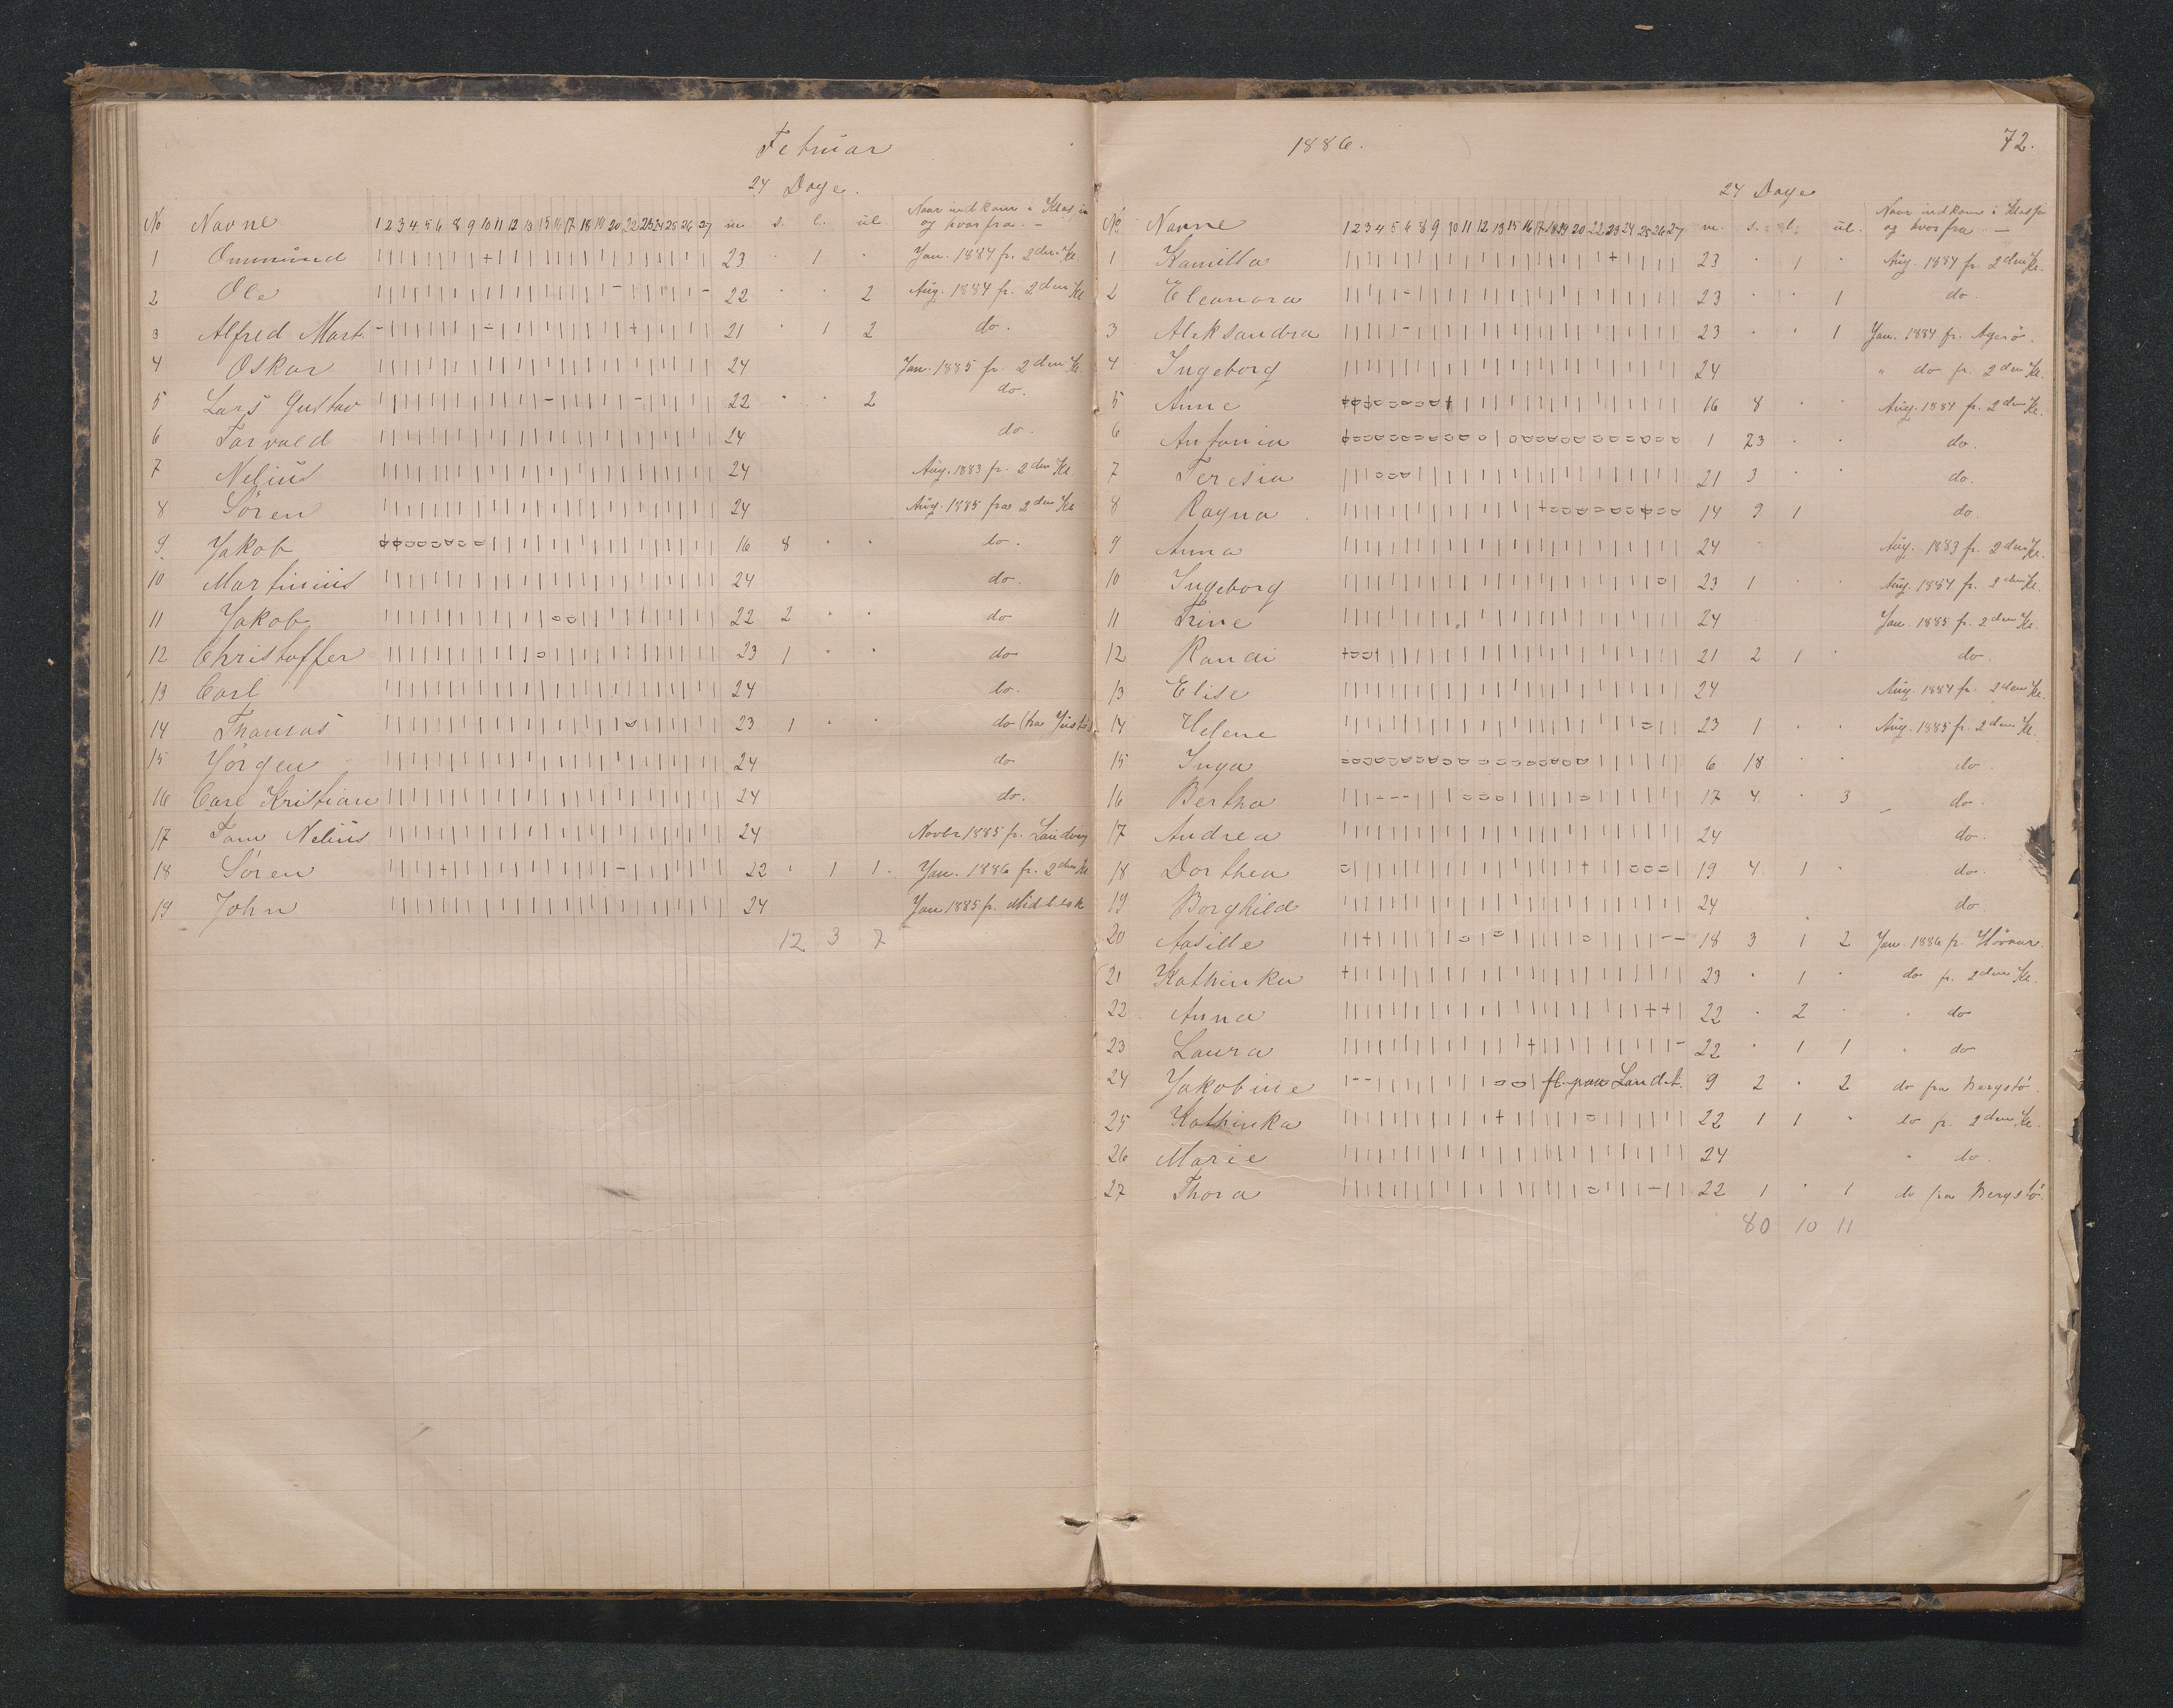 Februar
24 Dage.
No Navne 1 2 3 4 5 6 8 9 10 11 12 13 15 16 17 18 19 20 22 23 24 25 26 27 m s. l. ul. Naar indkom i Klassen og hvorfra. —
1 Ommund | | | | | | | | + | | | | | | | | | | | | | | | 23 " 1 " Jan. 1884 fr. 2den Kl.
2 Ole 22 " " 2 Aug. 1884 fr. 2den Kl
3 Alfred Mart. 21 " 1 2 do.
4 Oskar 24 Jan. 1885 fr. 2den Kl.
5 Lars Gustav 22 " " 2 do.
6 Torvald 24 do.
7 Nelius 24 Aug. 1883 fr. 2den Kl.
8 Sören 24 Aug. 1885 fra 2den Kl
9 Jakob 16 8 " " do.
10 Martinius 24 do.
11 Jakob 22 2 " " do
12 Christoffer 23 1 " " do
13 Carl 24 do.
14 Thomas 23 1 " " do (fra
15 Jörgen 24 do
16 Carl Kristian 24 do.
17 Tom Nelius 24 Novbr 1885 fr. Landvig
18 Sören 22 " 1 1. Jan. 1886 fr. 2den Kl
19 John 24 Jan 1885 fr.
12 3 7
1886.
72.
24 Dage
No Navne 1 2 3 4 5 6 8 9 10 11 12 13 15 16 17 18 19 20 22 23 24 25 26 27 m. s. l. ul. Naar indkom i Klassen og hvorfra. —
1 Kamilla 23 " 1 " Aug. 1884 fr. 2den Kl.
2 Eleonora 23 " " 1 do.
3 Aleksandra 23 " " 1 Jan. 1884 fr. Agerö.
4 Ingeborg 24 " do fr. 2den Kl.
5 Anne 16 8 " " Aug. 1884 fr. 2den Kl.
6 Antonia 1 23 " " do.
7 Teresia 21 3 " " do.
8 Ragna 14 9 1 do.
9 Anna 24 Aug. 1883 fr. 2den Kl.
10 Ingeborg 23 1 " " Aug. 1884 fr. 2den Kl.
11 Trine 24 Jan. 1885 fr. 2den Kl.
12 Randi 21 2 1 " do.
13 Elise 24 Aug. 1884 fr. 2den Kl.
14 Helene 23 1 " " Aug. 1885 fr. 2den Kl.
15 Inga 6 18 " " do
16 Bertha 17 4 " 3 do.
17 Andrea 24 do.
18 Dorthea 19 4 1 " do.
19 Borghild 24 do
20 Aasille 18 3 1 2 Jan. 1886 fr.
21 Kathinka 23 " 1 " do fr. 2den Kl.
22 Anna 22 " 2 " " do
23 Laura 22 " 1 1 " do
24 Jakobine fl. paa Landet. 9 2 " 2 do fra Bergstö
25 Kathinka 22 1 1 " do fr. 2den Kl.
26 Marie 24 " do.
27 Thora 22 1 " 1 do fra Bergstö
80 10 11